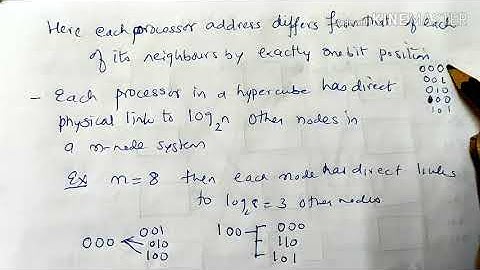 Here each processor address differs from that of each
of its neighbours by exactly one bit position
000
001
010
100
101
- Each processor in a hypercube has direct
physical link to log₂n other nodes in
a n-node system
Ex n=8 then each node has direct links
to log₂8 = 3 other nodes
000 001
010
100
100 000
110
101